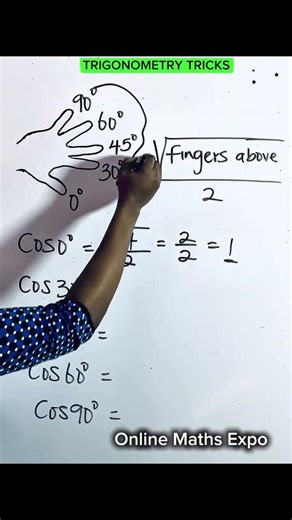 TRIGONOMETRY TRICKS
90°
60°
45°
30°
0°
√fingers above
2
Cos0° = = 2/2 = 1
2
Cos3
Cos60° =
Cos90° =
Online Maths Expo